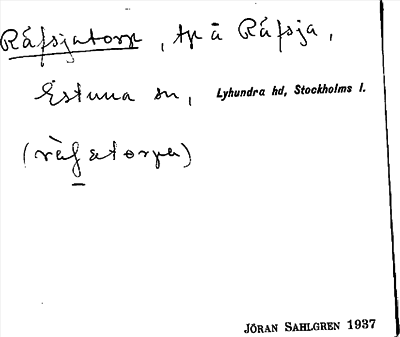 Råfsjatorp, tp å Råfsja,
Estuna sn, Lyhundra hd, Stockholms l.
JÖRAN SAHLGREN 1937